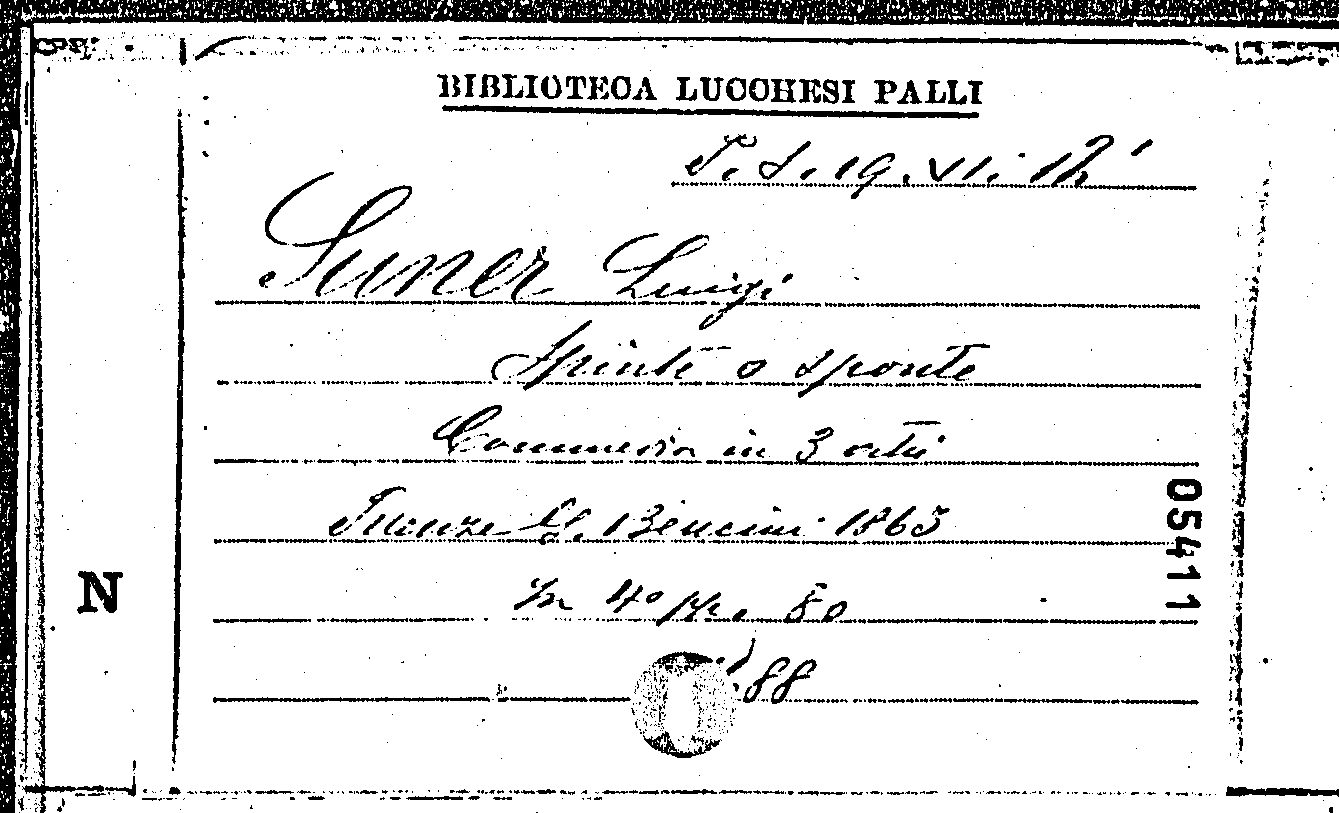 BIBLIOTECA LUCCHESI PALLI
Suner Luigi
Spinte o sponte
Commedia in 3 atti
Firenze G. Bencini 1863
In 4º pp. 80
88
05411
N